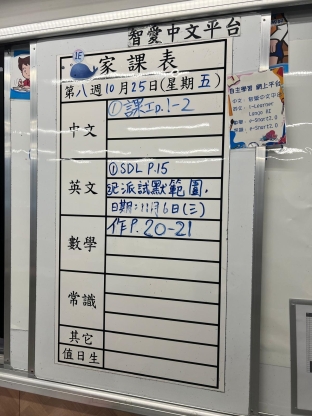 智愛中文平台
1E
家課表
第八週10月25日(星期五)
中文
①課工p.1-2
英文
①SDL P.15
已派試默範圍,
日期:11月6日(三)
數學
作P.20-21
常識
其它
值日生
自主學習 網上平台
中文：智愛中文平台
英文：i-Learner
Lanco AI
e-Smart2.0
e-Smart2.0